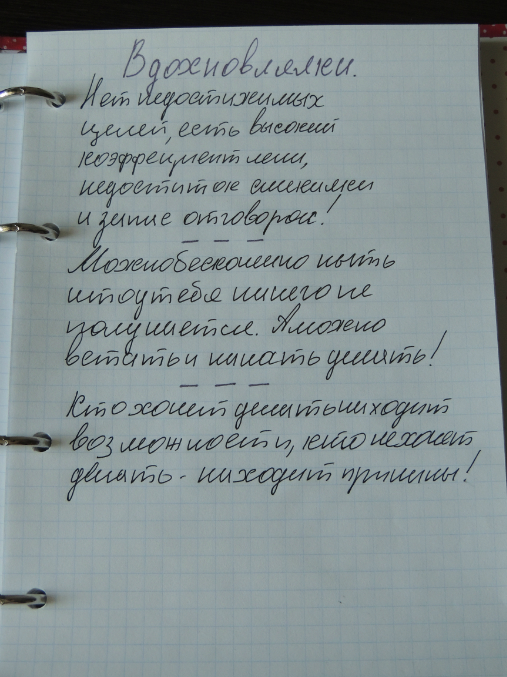 Вдохновлялки.
Нет недостижимых
целей, есть высокий
коэффициент лени,
недостаток смекалки
и запас отговорок!
— — —
Можно бесконечно ныть
что у тебя ничего не
получается. А можно
встать и начать делать!
— — —
Кто хочет делать находит
возможности, кто не хочет
делать - находит причины!